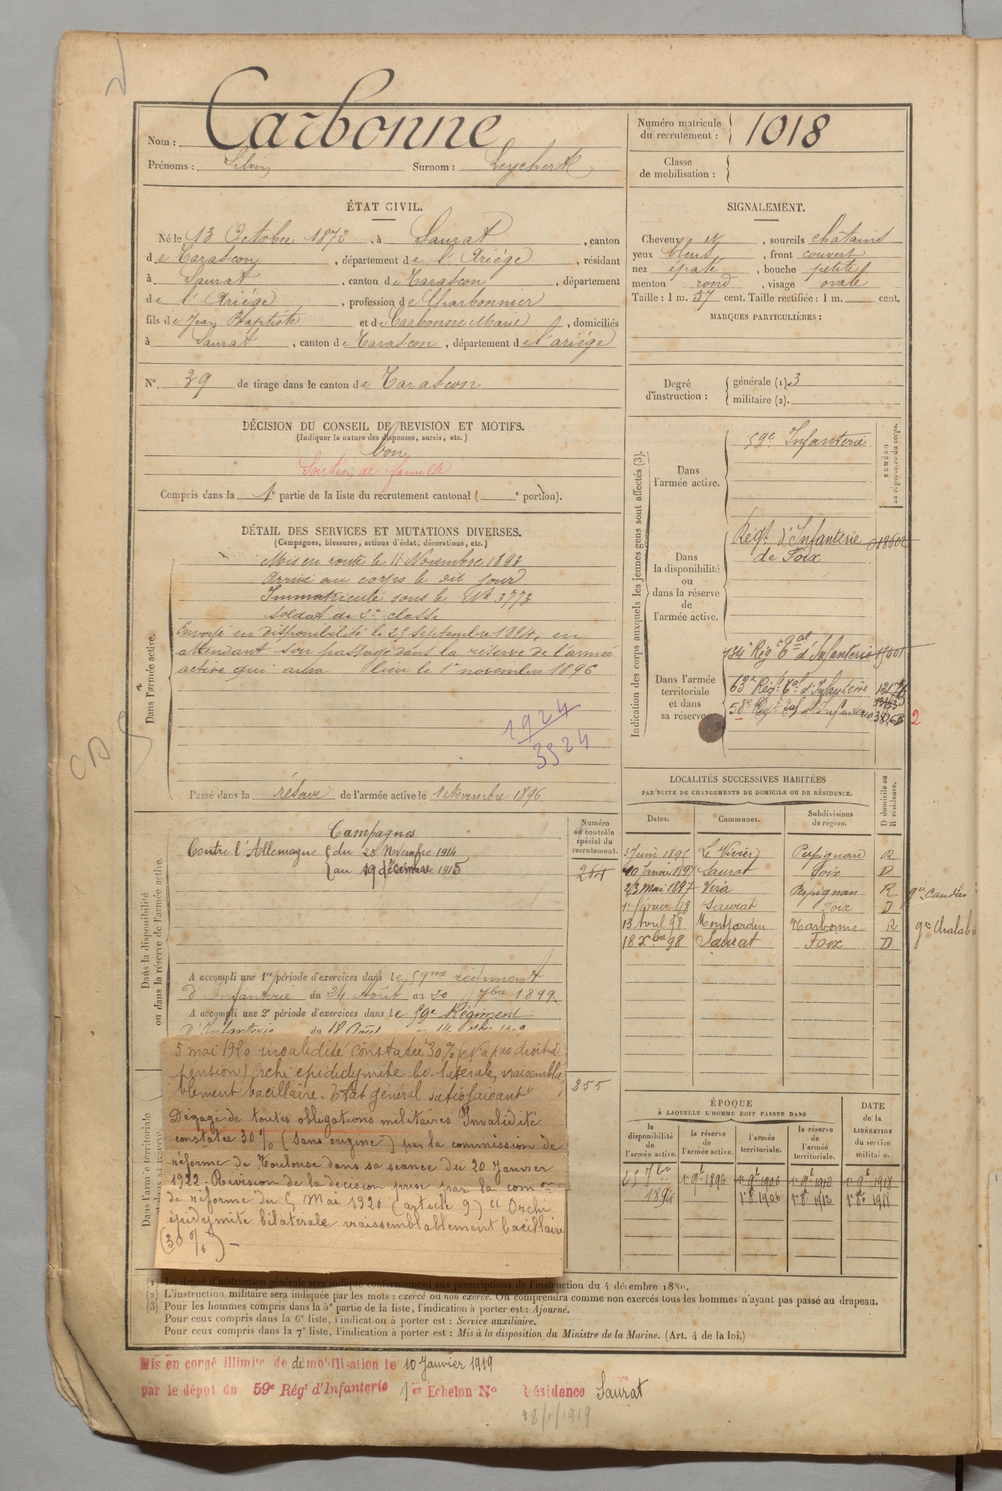 Nom : Carbonne
Prénoms : Silvin Surnom : Leychert
Numéro matricule du recrutement : 1018
Classe de mobilisation :
ÉTAT CIVIL.
Né le 13 Octobre 1872, à Saurat, canton
de Tarascon, département de l'Ariége, résidant
à Saurat, canton de Tarascon, département
de l'Ariége, profession de Charbonnier
fils de Jean Baptiste et de Carbonne Marie, domiciliés
à Saurat, canton de Tarascon, département de l'ariége
N° 39 de tirage dans le canton de Tarascon
SIGNALEMENT.
Cheveux et, sourcils châtains
yeux bleus, front couvert
nez épaté, bouche petite
menton rond, visage ovale
Taille : 1 m. 57 cent. Taille rectifiée : 1 m. cent.
MARQUES PARTICULIÈRES :
Degré d'instruction : générale (1). 3
militaire (2).
DÉCISION DU CONSEIL DE REVISION ET MOTIFS.
(Indiquer la nature des dispenses, sursis, etc.)
bon
Soutien de famille
Compris dans la 1e partie de la liste du recrutement cantonal ( e portion).
DÉTAIL DES SERVICES ET MUTATIONS DIVERSES.
(Campagnes, blessures, actions d'éclat, décorations, etc.)
Dans l'armée active.
Mis en route le 11 Novembre 1893
Arrivé au corps le dit jour
Immatriculé sous le No 3773
Soldat de 2e classe
Envoyé en disponibilité le 25 Septembre 1894, en
attendant son passage dans la réserve de l'armée
active qui aura lieu le 1er novembre 1896
1924
3524
Passé dans la réserve de l'armée active le 1 Novembre 1896
Indication des corps auxquels les jeunes gens sont affectés (3).
NUMÉRO
Dans l'armée active.
59e Infanterie
Dans la disponibilité ou dans la réserve de l'armée active.
Régt d'Infanterie de Foix
Dans l'armée territoriale et dans sa réserve.
134e Rég t al d'Infanterie
63e Régt tal d'Infanterie
58e Régt tal d'Infanterie
2
Dans la disponibilité ou dans la réserve de l'armée active.
Campagnes
Contre l'Allemagne du 25 Novembre 1914
au 19 décembre 1915
A accompli une 1re période d'exercices dans le 59me régiment
d'Infanterie du 24 Août au 20 7bre 1899.
A accompli une 2e période d'exercices dans le 59e Régiment
d'Infanterie du 18 Août
Numéro au contrôle spécial du recrutement.
855
LOCALITÉS SUCCESSIVES HABITÉES
PAR SUITE DE CHANGEMENTS DE DOMICILE OU DE RÉSIDENCE.
D domicile ou R résidence.
Dates. Communes. Subdivisions de région.
Juin 1895 Le Vivier Perpignan R
10 Janvier 1897 Saurat Foix D
23 Mai 1897 Vira Perpignan R
1er février 98 Saurat Foix D
13 Avril 98 Montjardin Narbonne R
18 Xbre 98 Saurat Foix D
5 mai 1920 invalidité constatée 30% (n'a pas droit à
pension) Orchi epididymite bi-latérale, vraisembla-
blement bacillaire. Etat général satisfaisant
Dégagé de toutes obligations militaires Invalidité
constatée 30% (sans origine) par la commission de
réforme de Toulouse dans sa séance du 20 Janvier
1922. Révision de la décision prise par la comon
de réforme du 5 Mai 1920 (article 9) "Orchi
épidymite bilatérale vraissemblablement bacillaire
(30%) –
ÉPOQUE
A LAQUELLE L'HOMME DOIT PASSER DANS
la disponibilité de l'armée active. la réserve de l'armée active. l'armée territoriale. la réserve de l'armée territoriale.
DATE de la LIBÉRATION du service militaire.
(1) Le degré d'instruction générale sera indiqué conformément aux prescriptions de l'instruction du 4 décembre 1889.
(2) L'instruction militaire sera indiquée par les mots : exercé ou non exercé. On comprendra comme non exercés tous les hommes n'ayant pas passé au drapeau.
(3) Pour les hommes compris dans la 5e partie de la liste, l'indication à porter est : Ajourné.
Pour ceux compris dans la 6e liste, l'indication à porter est : Service auxiliaire.
Pour ceux compris dans la 7e liste, l'indication à porter est : Mis à la disposition du Ministre de la Marine. (Art. 4 de la loi.)
Mis en congé illimité de démobilisation le 10 Janvier 1919
par le dépôt du 59e Régt d'Infanterie 1er Echelon N° Résidence Saurat